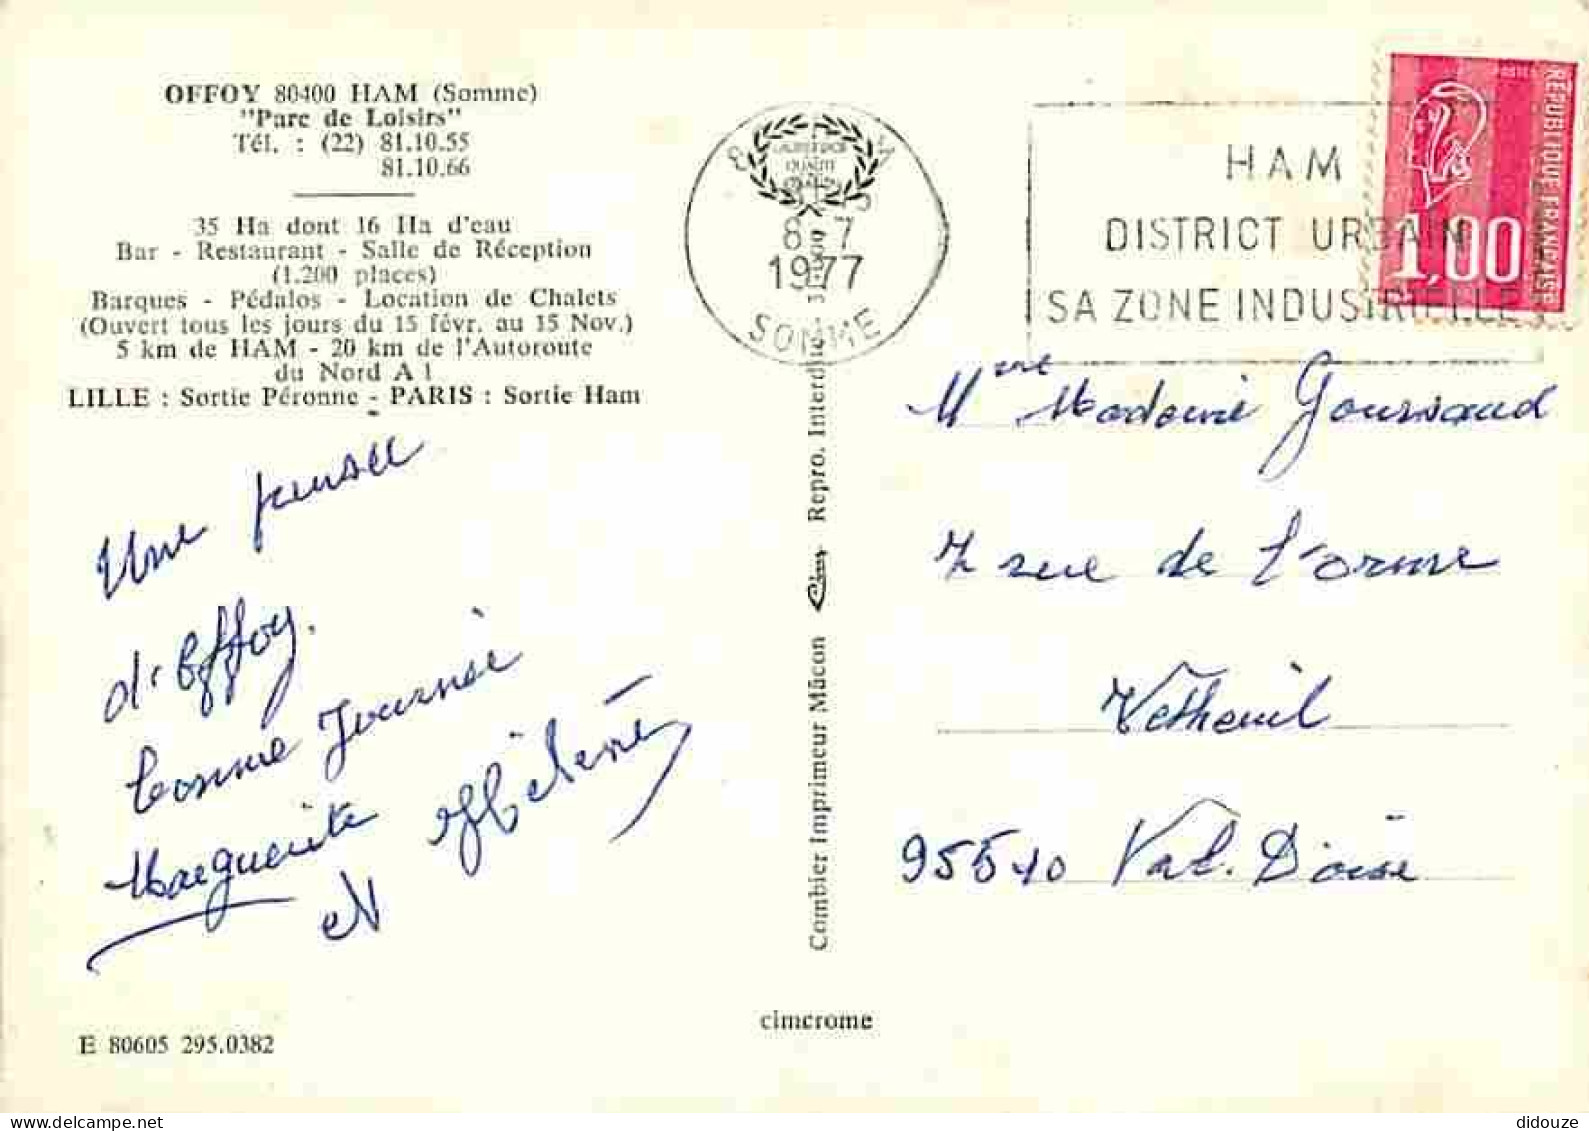 OFFOY 80400 HAM (Somme)
"Parc de Loisirs"
Tél. : (22) 81.10.55
81.10.66
35 Ha dont 16 Ha d'eau
Bar - Restaurant - Salle de Réception
(1.200 places)
Barques - Pédalos - Location de Chalets
(Ouvert tous les jours du 15 févr. au 15 Nov.)
5 km de HAM - 20 km de l'Autoroute
du Nord A 1
LILLE : Sortie Péronne - PARIS : Sortie Ham
Une pensée
d'Offoy.
Bonne Journée
Marguerite
et
E 80605 295.0382
Combier Imprimeur Mâcon Cim Repro. Interdite
cimcrome
8-7
1977
SOMME
HAM
DISTRICT URBAIN
SA ZONE INDUSTRIELLE
1,00
REPUBLIQUE FRANCAISE
POSTES
Madame Goursaud
7 rue de l'orme
Vetheuil
95510 Val. D'oise
didouze